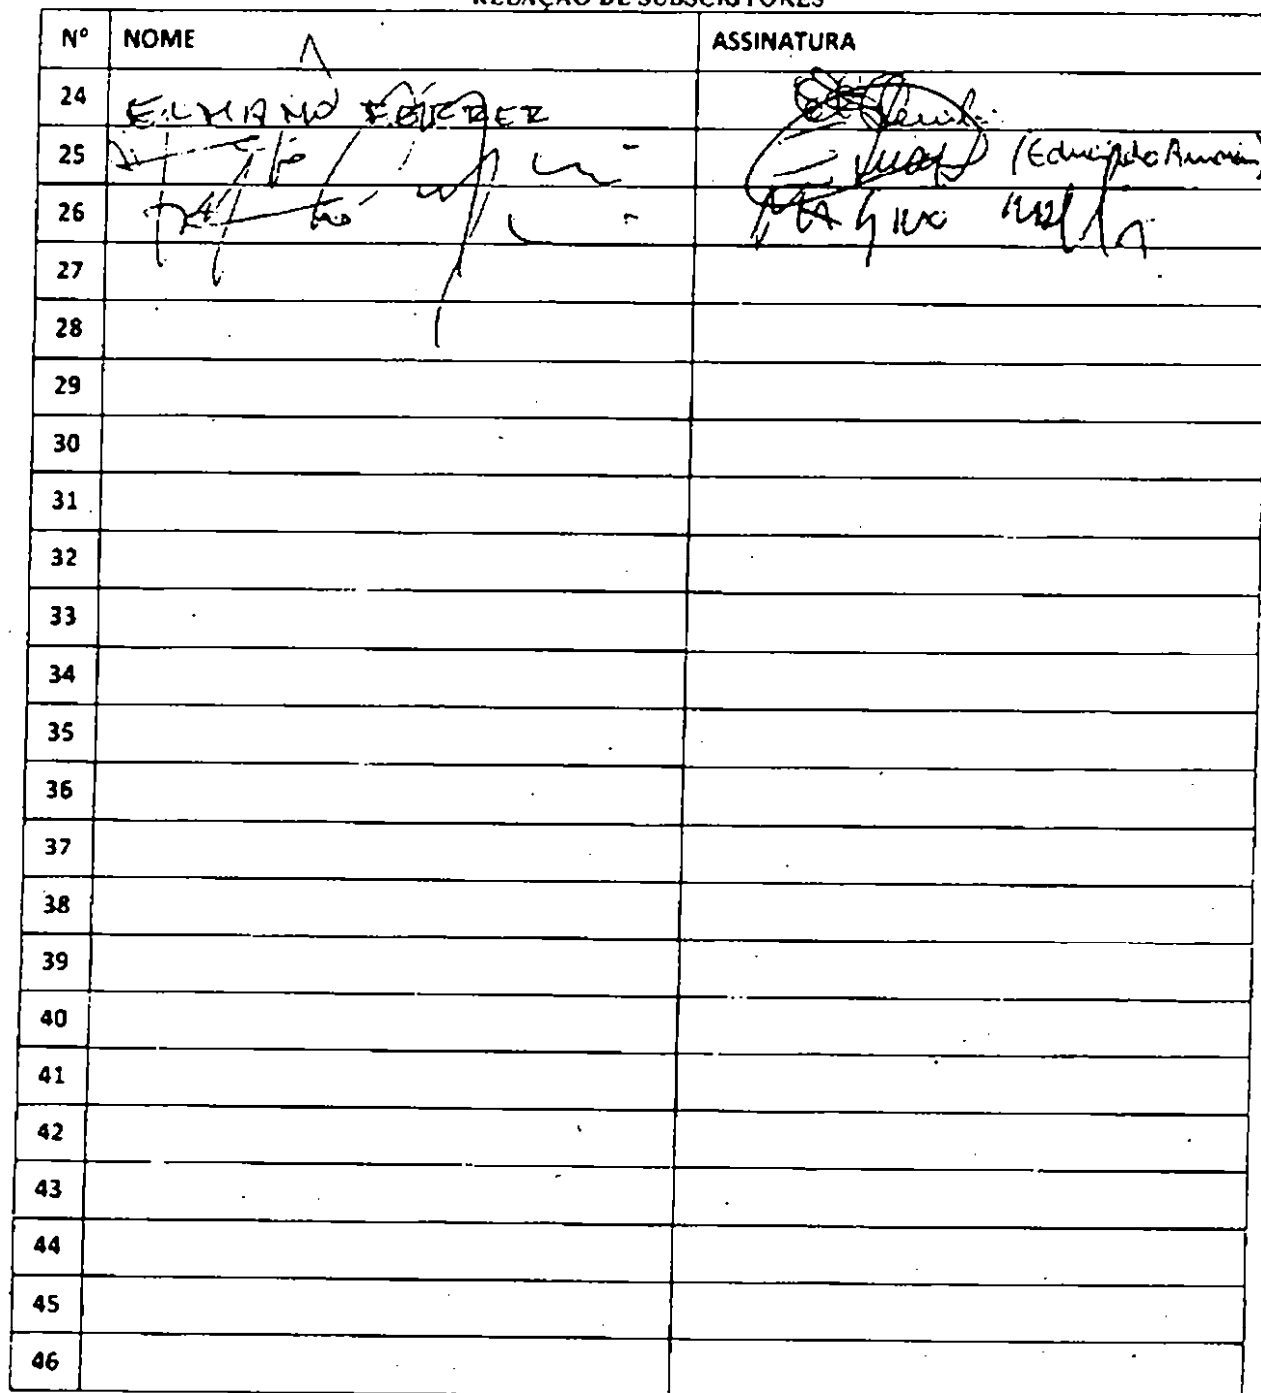 RELAÇÃO DE SUBSCRITORES
Nº NOME ASSINATURA
24 ELMANO FÉRRER
25 (Eduardo Amorim)
26 MAGNO MALTA
27
28
29
30
31
32
33
34
35
36
37
38
39
40
41
42
43
44
45
46